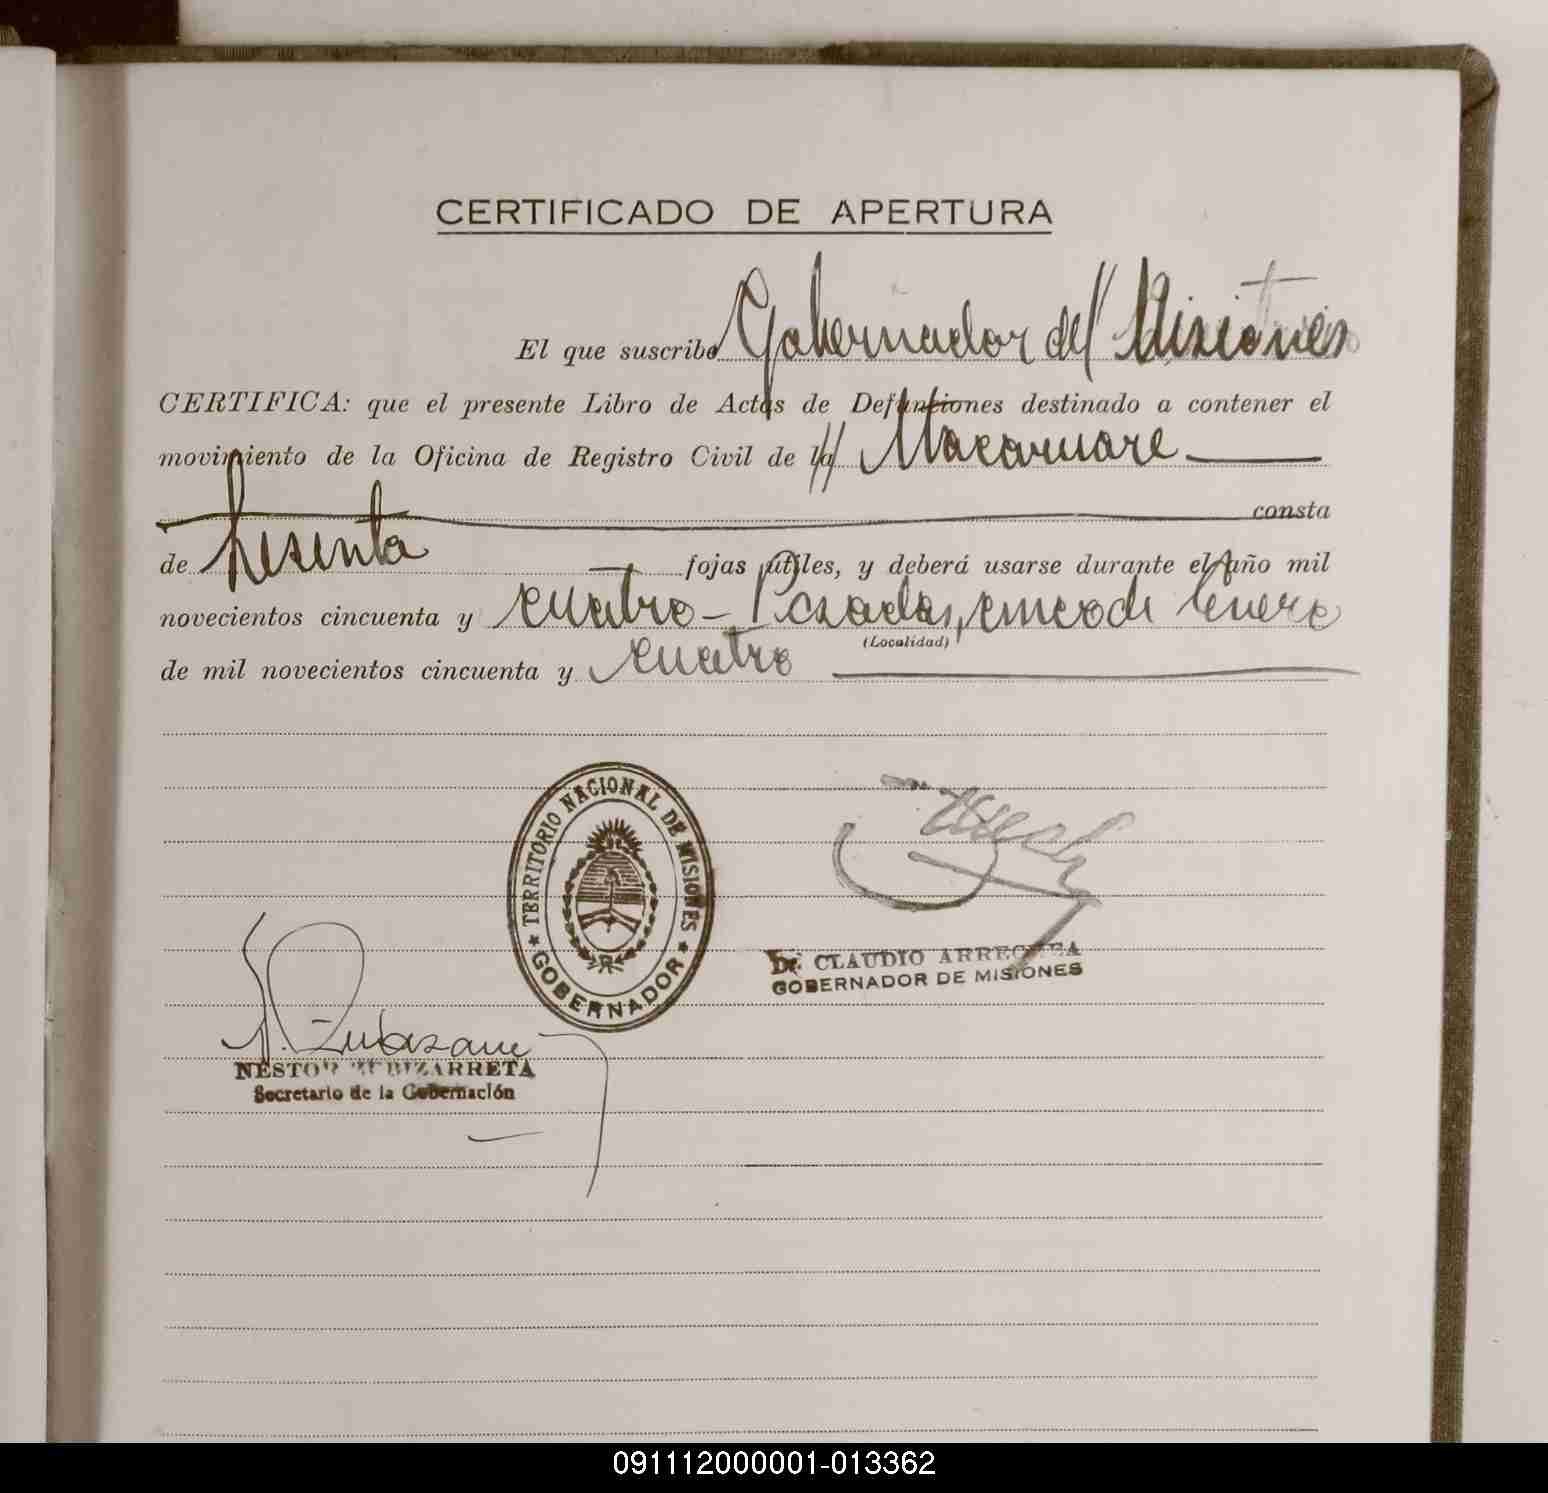 CERTIFICADO DE APERTURA
El que suscribe Gobernador de Misiones
CERTIFICA: que el presente Libro de Actas de Defunciones destinado a contener el
movimiento de la Oficina de Registro Civil de la
consta
de sesenta fojas útiles, y deberá usarse durante el año mil
novecientos cincuenta y cuatro - Posadas, cinco de Enero
(Localidad)
de mil novecientos cincuenta y cuatro
TERRITORIO NACIONAL DE MISIONES
GOBERNADOR
Dr. CLAUDIO ARRECHEA
GOBERNADOR DE MISIONES
N. Zubizarre
NESTOR ZUBIZARRETA
Secretario de la Gobernación
091112000001-013362